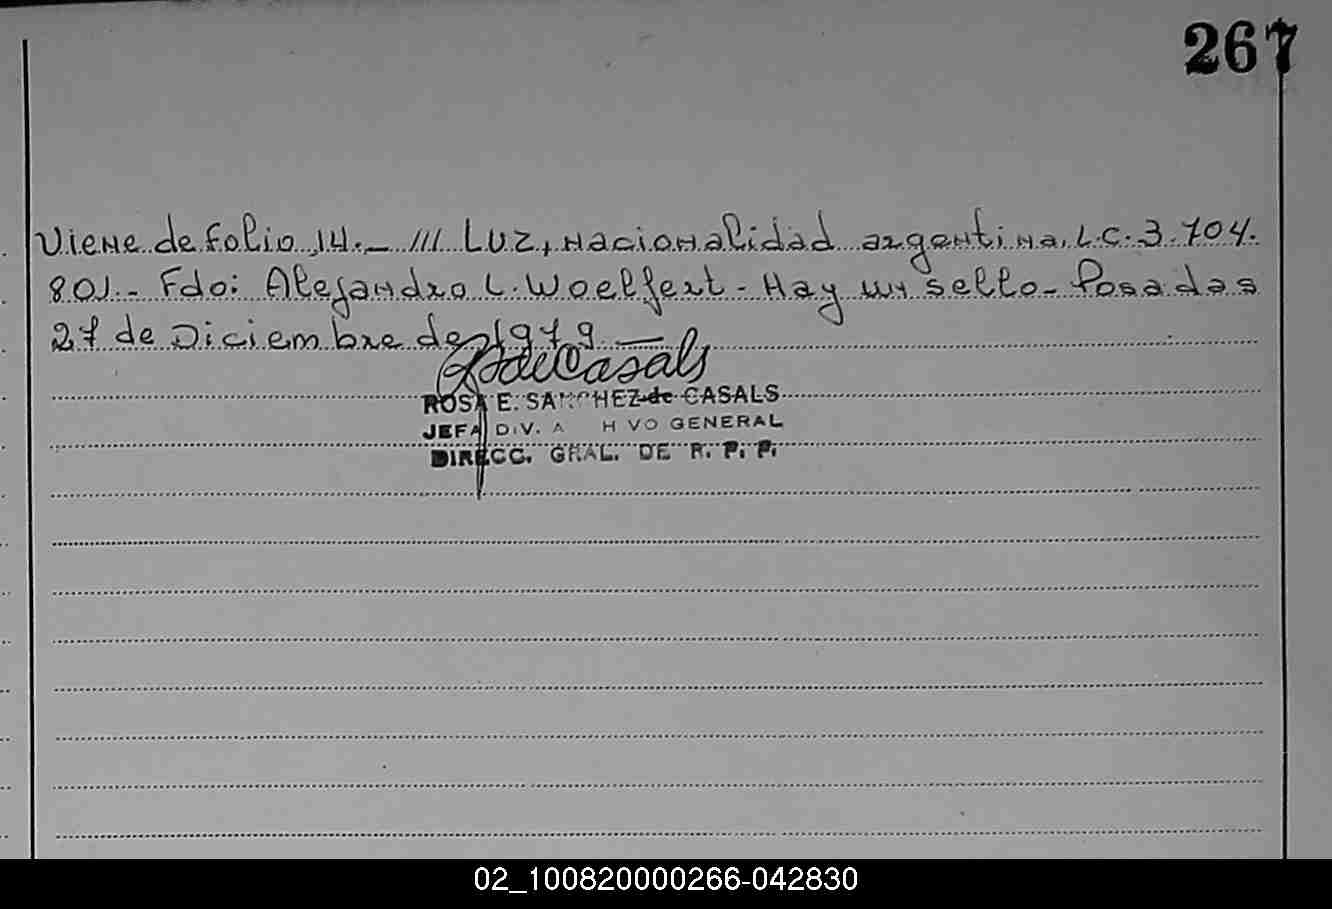 267
Viene de folio 14._ /// LUZ, nacionalidad argentina, L.C. 3.704.
801._ Fdo: Alejandro L. Woelfert - Hay un sello - Posadas
27 de Diciembre de 1979 —
R S de Casals
ROSA E. SANCHEZ de CASALS
JEFA DIV. A HIVO GENERAL
DIRECC. GRAL. DE R. P. P.
02_100820000266-042830